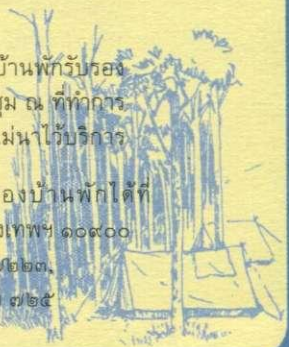 บ้านพักรับรอง
ชุม ณ ที่ทำการ
ไม่นาไว้บริการ
องบ้านพักได้ที่
งเทพฯ ๑๐๙๐๐
๒๒๓,
๗๒๕